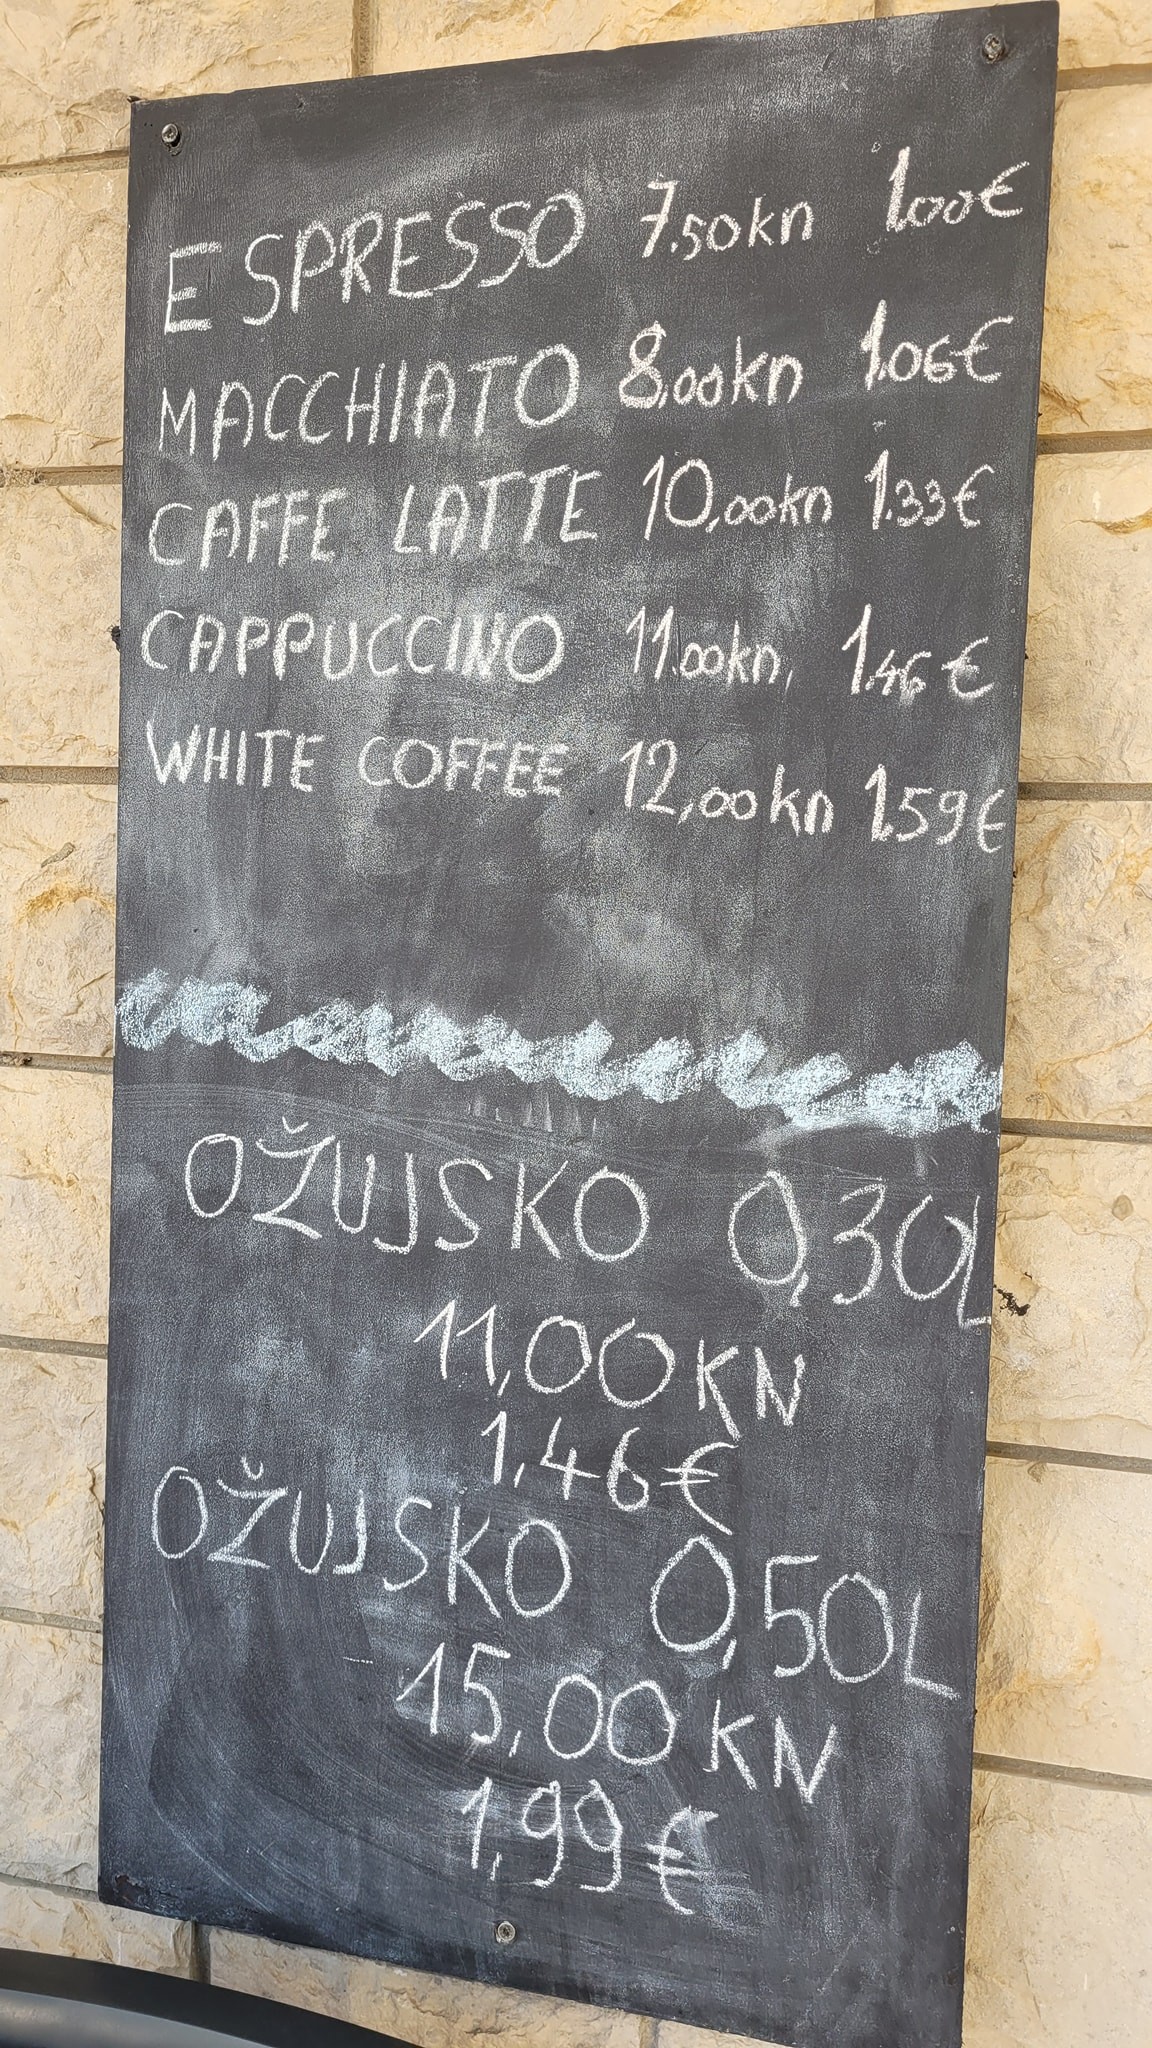 ESPRESSO 7.50kn 1.00€
MACCHIATO 8,00kn 1.06€
CAFFE LATTE 10,00kn 1.33€
CAPPUCCINO 11.00kn, 1.46€
WHITE COFFEE 12,00kn 1.59€
OŽUJSKO 0,30L
11,00KN
1,46€
OŽUJSKO 0,50L
15,00KN
1,99€